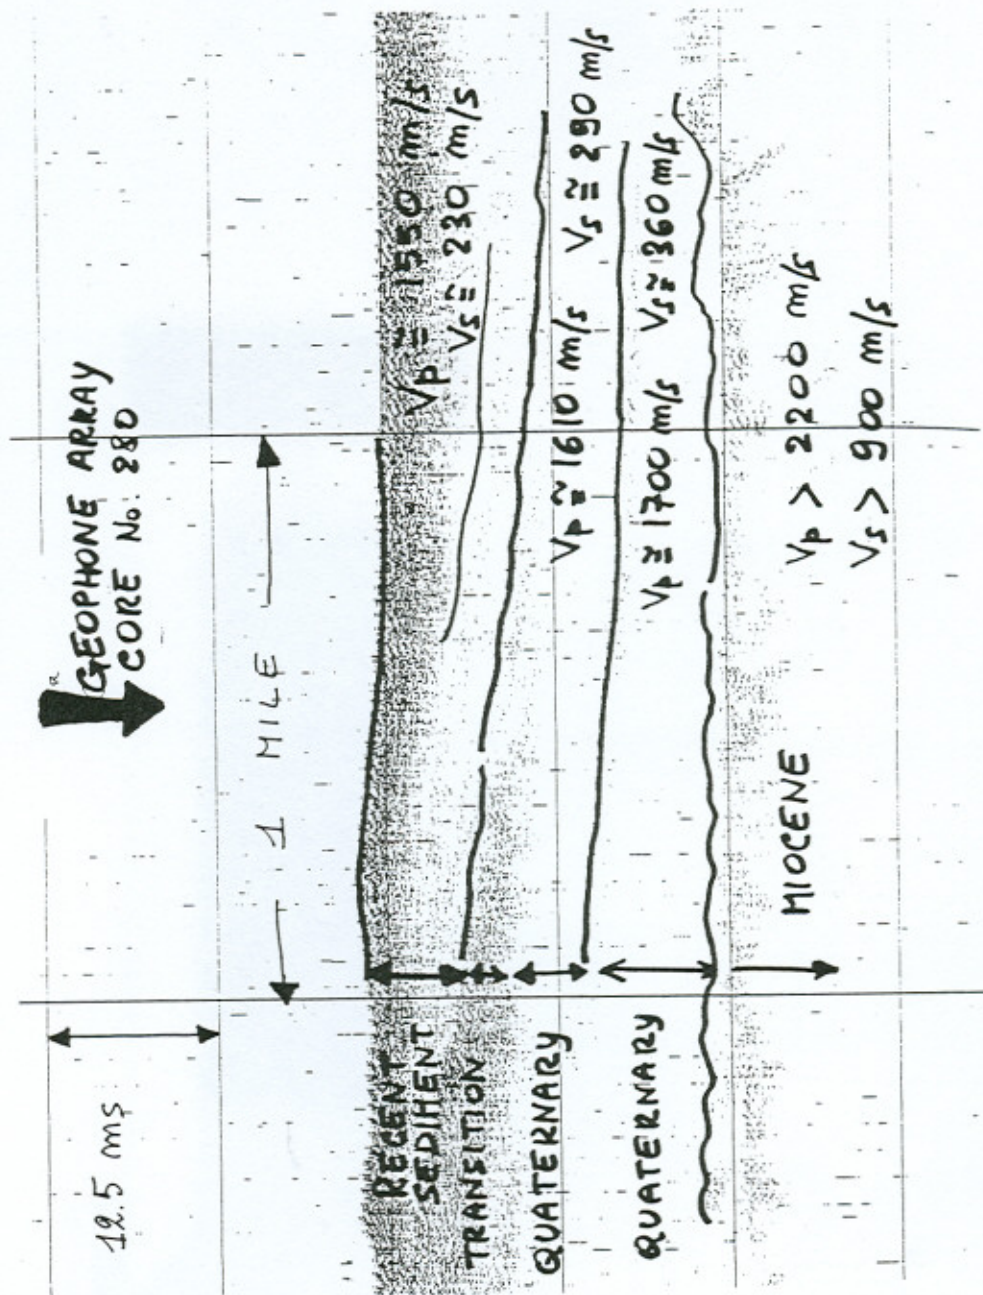 GEOPHONE ARRAY
CORE No. 280
12.5 ms
1 MILE
RECENT
SEDIMENT
TRANSITION
QUATERNARY
QUATERNARY
MIOCENE
Vp ≅ 1550 m/s
Vs ≅ 230 m/s
Vp ≅ 1610 m/s Vs ≅ 290 m/s
Vp ≅ 1700 m/s Vs ≅ 360 m/s
Vp > 2200 m/s
Vs > 900 m/s